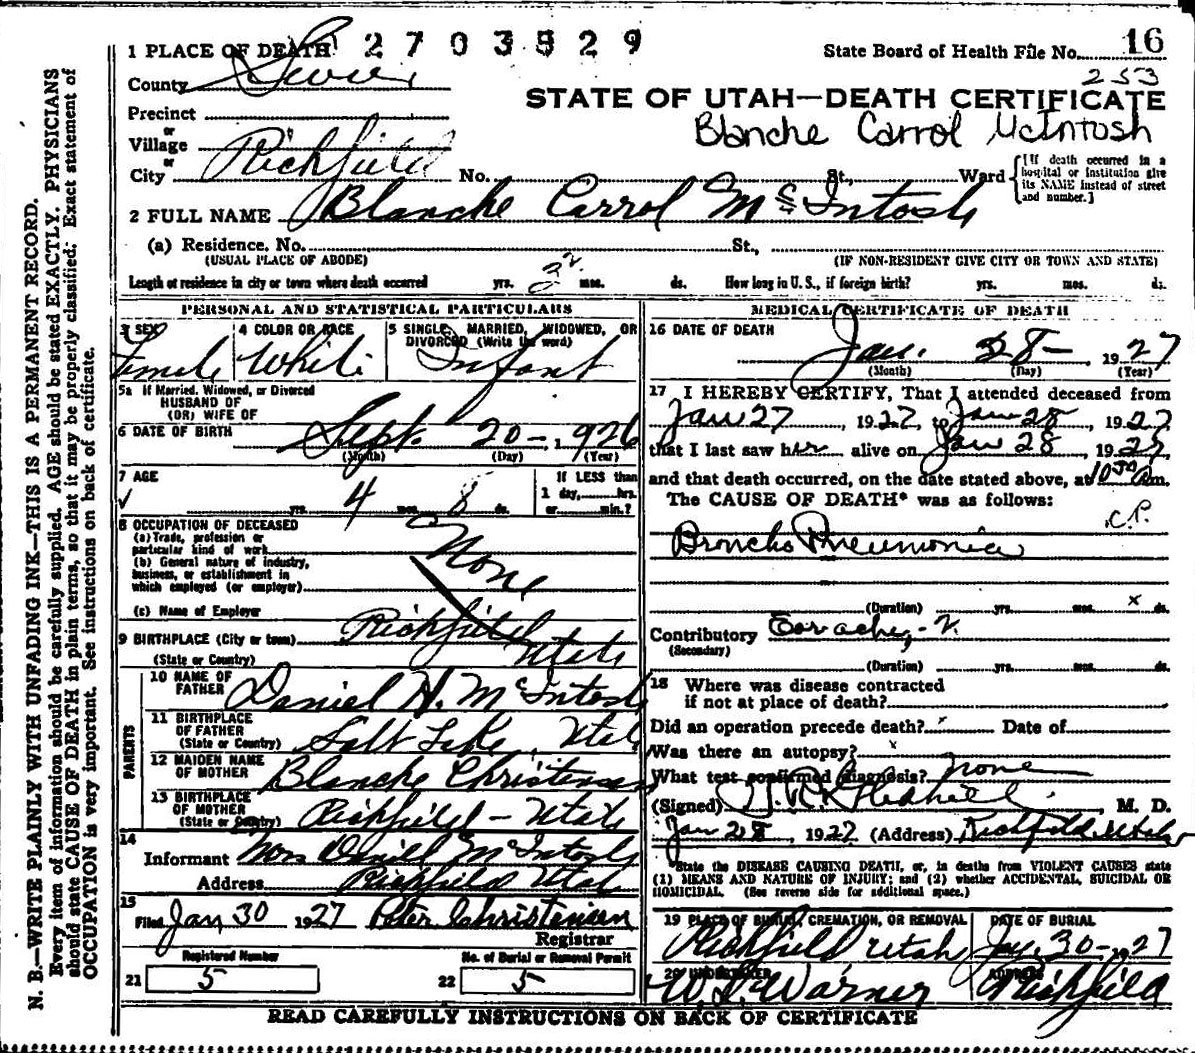 2703529
State Board of Health File No. 16
253
1 PLACE OF DEATH
County Sevier
STATE OF UTAH—DEATH CERTIFICATE
Blanche Carrol McIntosh
Precinct
or
Village
or
City Richfield No. St., Ward
[If death occurred in a hospital or institution give its NAME instead of street and number.]
2 FULL NAME Blanche Carrol McIntosh
(a) Residence. No. St.,
(USUAL PLACE OF ABODE) (IF NON-RESIDENT GIVE CITY OR TOWN AND STATE)
Length of residence in city or town where death occurred yrs. mos. ds. How long in U. S., if foreign birth? yrs. mos. ds.
PERSONAL AND STATISTICAL PARTICULARS
3 SEX
Female
4 COLOR OR RACE
White
5 SINGLE, MARRIED, WIDOWED, OR
DIVORCED (Write the word)
Infant
5a If Married, Widowed, or Divorced
HUSBAND OF
(OR) WIFE OF
6 DATE OF BIRTH Sept. 20- 1926
(Month) (Day) (Year)
7 AGE
yrs. 4 mos. 8 ds.
If LESS than
1 day, hrs.
or min.?
8 OCCUPATION OF DECEASED
(a) Trade, profession or
particular kind of work
(b) General nature of industry,
business, or establishment in
which employed (or employer)
None
(c) Name of Employer
9 BIRTHPLACE (City or town) Richfield
(State or Country) Utah
PARENTS
10 NAME OF
FATHER Daniel H. McIntosh
11 BIRTHPLACE
OF FATHER
(State or Country) Salt Lake, Utah
12 MAIDEN NAME
OF MOTHER Blanche Christensen
13 BIRTHPLACE
OF MOTHER
(State or Country) Richfield - Utah
14
Informant Mrs Daniel McIntosh
Address Richfield Utah
15
Filed Jan 30 1927 Peter Christensen
Registrar
Registered Number
21 5
No. of Burial or Removal Permit
22 5
MEDICAL CERTIFICATE OF DEATH
16 DATE OF DEATH
Jan. 28- 1927
(Month) (Day) (Year)
17 I HEREBY CERTIFY, That I attended deceased from
Jan 27, 1927, to Jan 28, 1927,
that I last saw her alive on Jan 28, 1927,
and that death occurred, on the date stated above, at 10 30 a.m.
The CAUSE OF DEATH* was as follows:
C.P.
Broncho Pneumonia
(Duration) yrs. mos. x ds.
Contributory Earache,
(Secondary)
(Duration) yrs. mos. ds.
18 Where was disease contracted
if not at place of death?
Did an operation precede death? Date of
Was there an autopsy? x
What test confirmed diagnosis? none
(Signed), M. D.
Jan 28, 1927 (Address) Richfield Utah
*State the DISEASE CAUSING DEATH, or, in deaths from VIOLENT CAUSES state
(1) MEANS AND NATURE OF INJURY; and (2) whether ACCIDENTAL, SUICIDAL OR
HOMICIDAL. (See reverse side for additional space.)
19 PLACE OF BURIAL, CREMATION, OR REMOVAL
Richfield Utah
DATE OF BURIAL
Jan 30- 1927
20 UNDERTAKER
Warner
ADDRESS
Richfield
READ CAREFULLY INSTRUCTIONS ON BACK OF CERTIFICATE
N. B.—WRITE PLAINLY WITH UNFADING INK—THIS IS A PERMANENT RECORD.
Every item of information should be carefully supplied. AGE should be stated EXACTLY. PHYSICIANS
should state CAUSE OF DEATH in plain terms, so that it may be properly classified. Exact statement of
OCCUPATION is very important. See instructions on back of certificate.